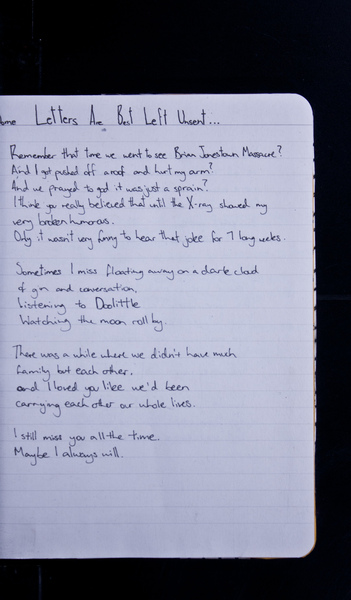 ome Letters Are Best Left Unsent...
Remember that time we went to see Brian Jonestown Massacre?
And I got pushed off a roof and hurt my arm?
And we prayed to god it was just a sprain?
I think you really believed that until the X-ray showed my
very broken humorous.
Only it wasn't very funny to hear that joke for 7 long weeks.
Sometimes I miss floating away on a dark cloud
of gin and conversation,
Listening to Doolittle
Watching the moon roll by.
There was a while where we didn't have much
family but each other.
and I loved you like we'd been
carrying each other our whole lives.
I still miss you all the time.
Maybe I always will.